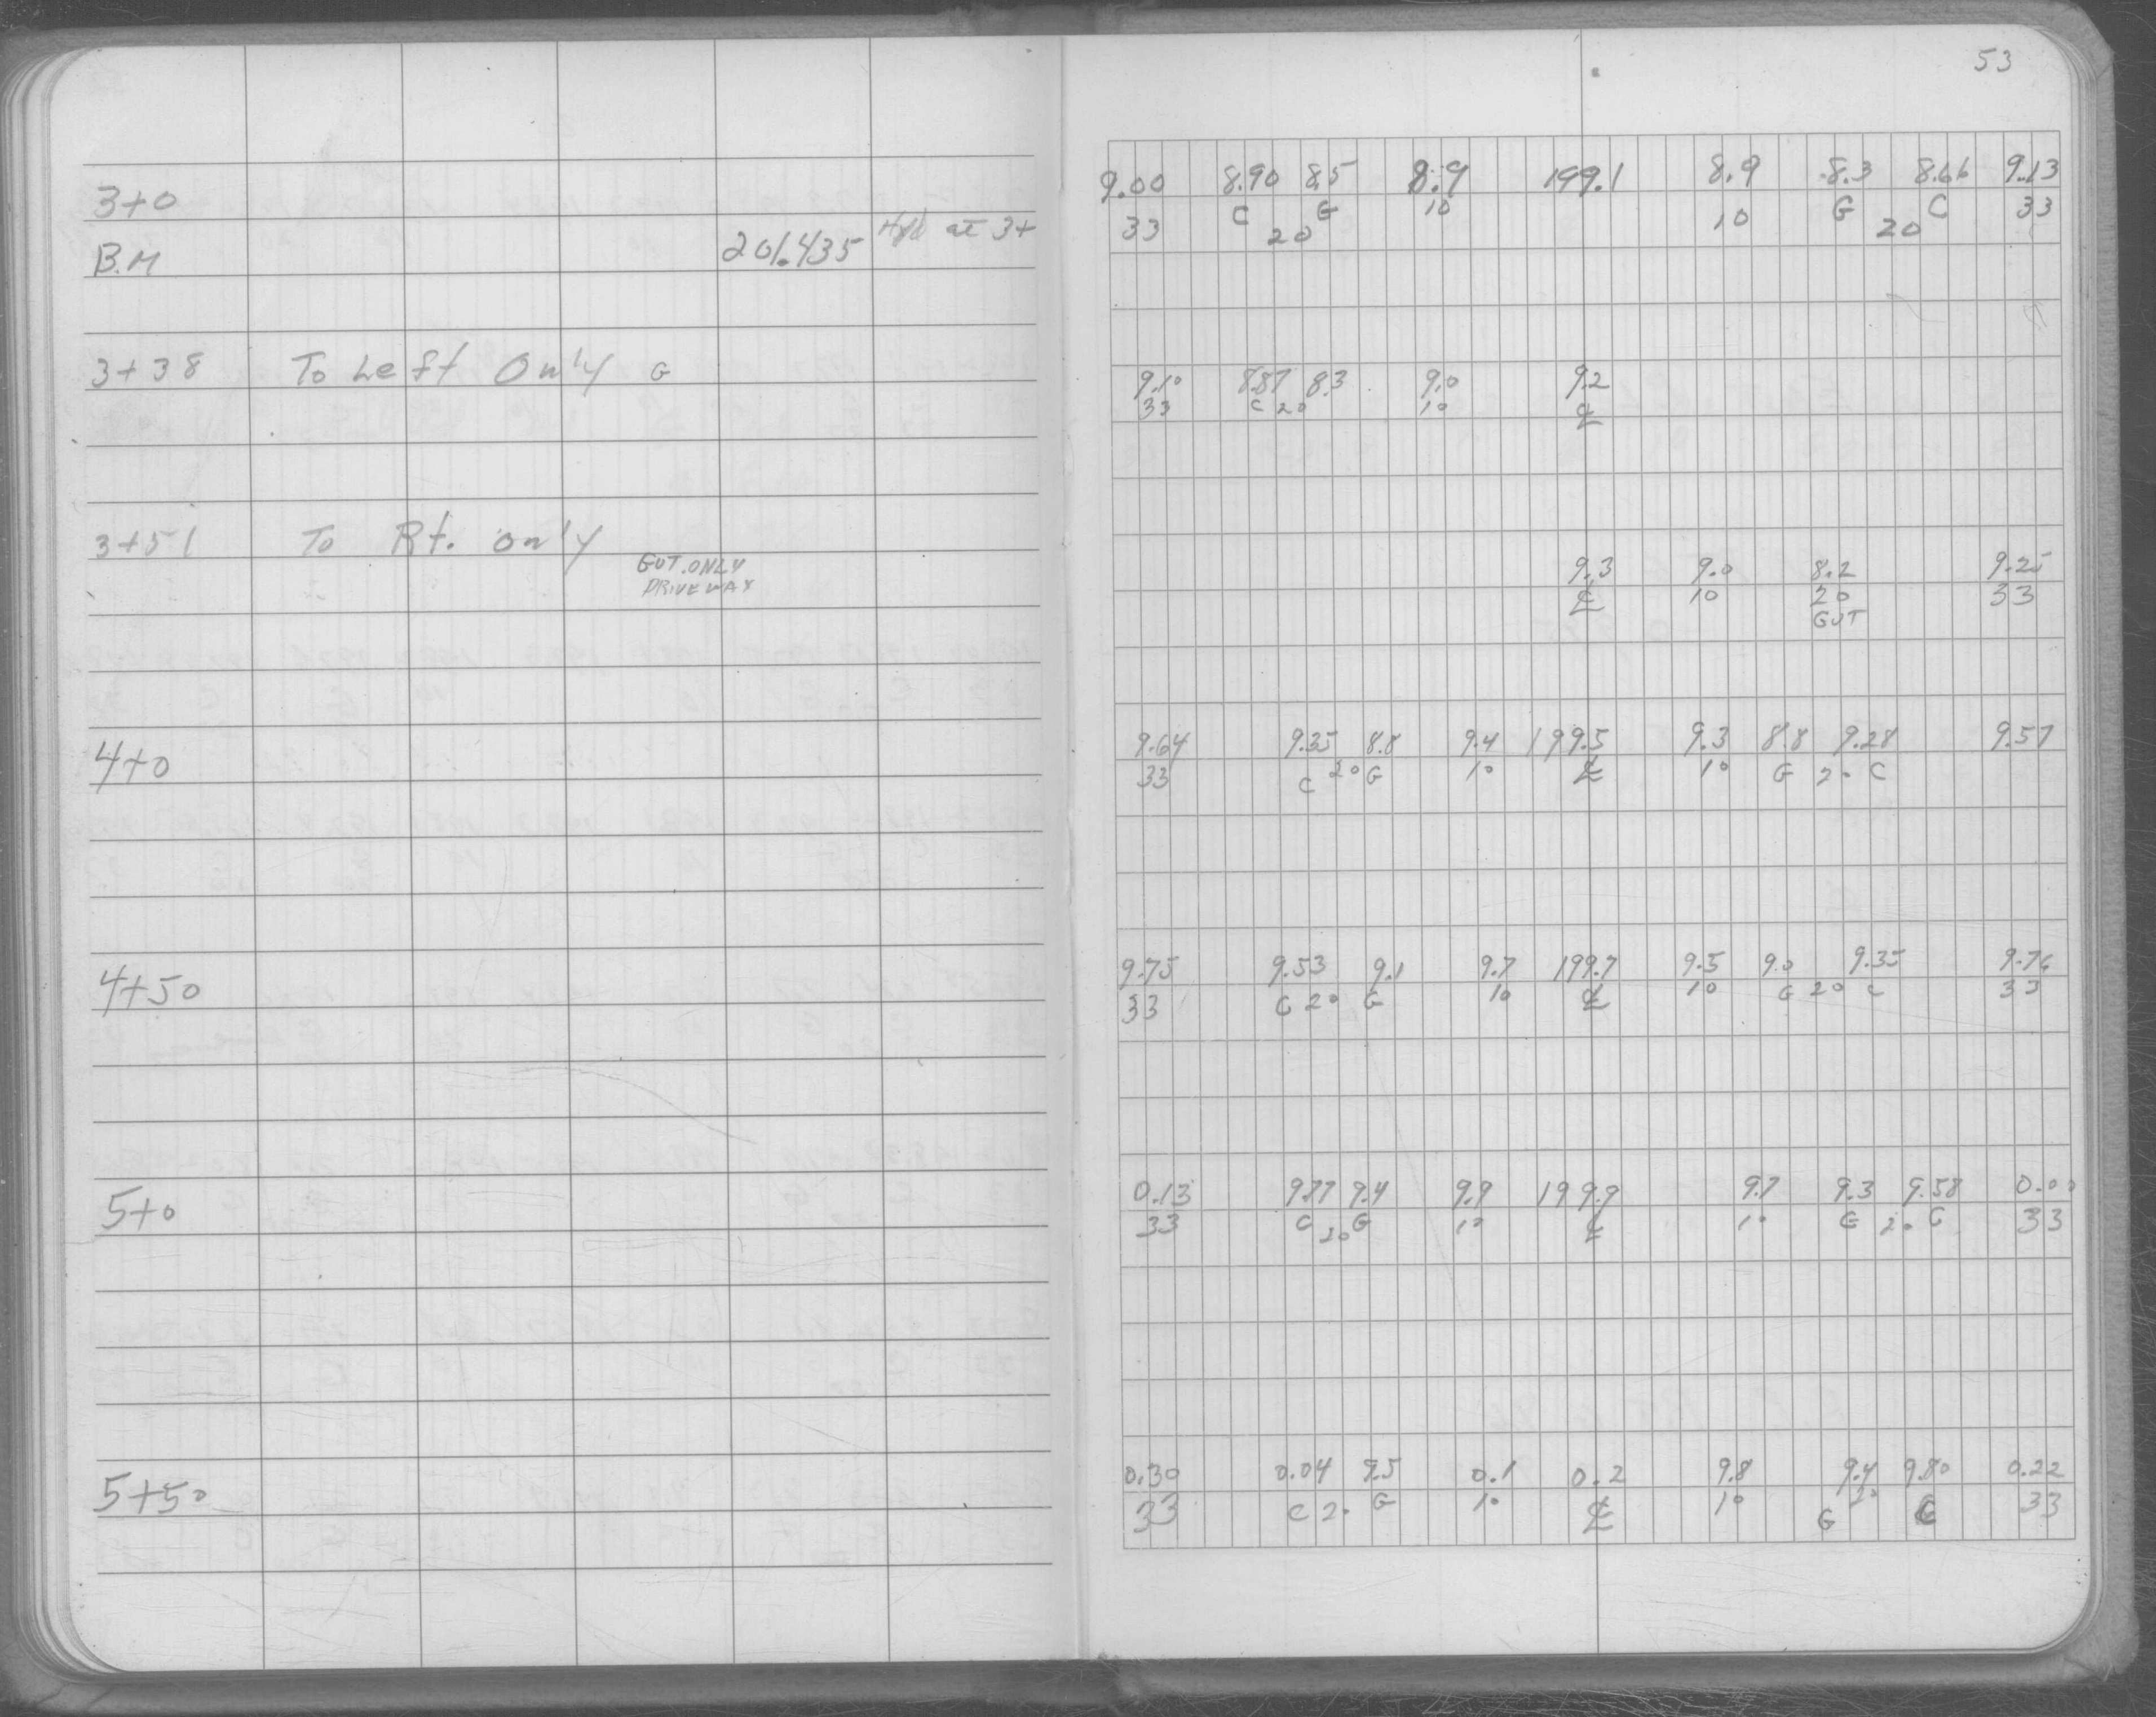 53
3+0
9.00 8.90 8.5 8.9 199.1 8.9 8.3 8.66 9.13
33 C 20 G 10 10 G 20 C 33
B.M 201.435 Hyd at 3+
3+38 To Left Only G
9.10 8.87 8.3 9.0 9.2
33 C 20 10 ℄
3+51 To Rt. only
GUT. ONLY
DRIVEWAY
9.3 9.0 8.2 9.25
℄ 10 20 33
GUT
4+0
9.64 9.35 8.8 9.4 199.5 9.3 8.8 9.28 9.57
33 C 20 G 10 ℄ 10 G 20 C
4+50
9.75 9.53 9.1 9.7 199.7 9.5 9.0 9.35 9.76
33 C 20 G 10 ℄ 10 G 20 C 33
5+0
0.13 9.77 9.4 9.9 199.9 9.7 9.3 9.58 0.00
33 C 20 G 10 ℄ 10 G 20 C 33
5+50
0.30 0.04 9.5 0.1 0.2 9.8 9.4 9.80 0.22
33 C 20 G 10 ℄ 10 G 20 C 33